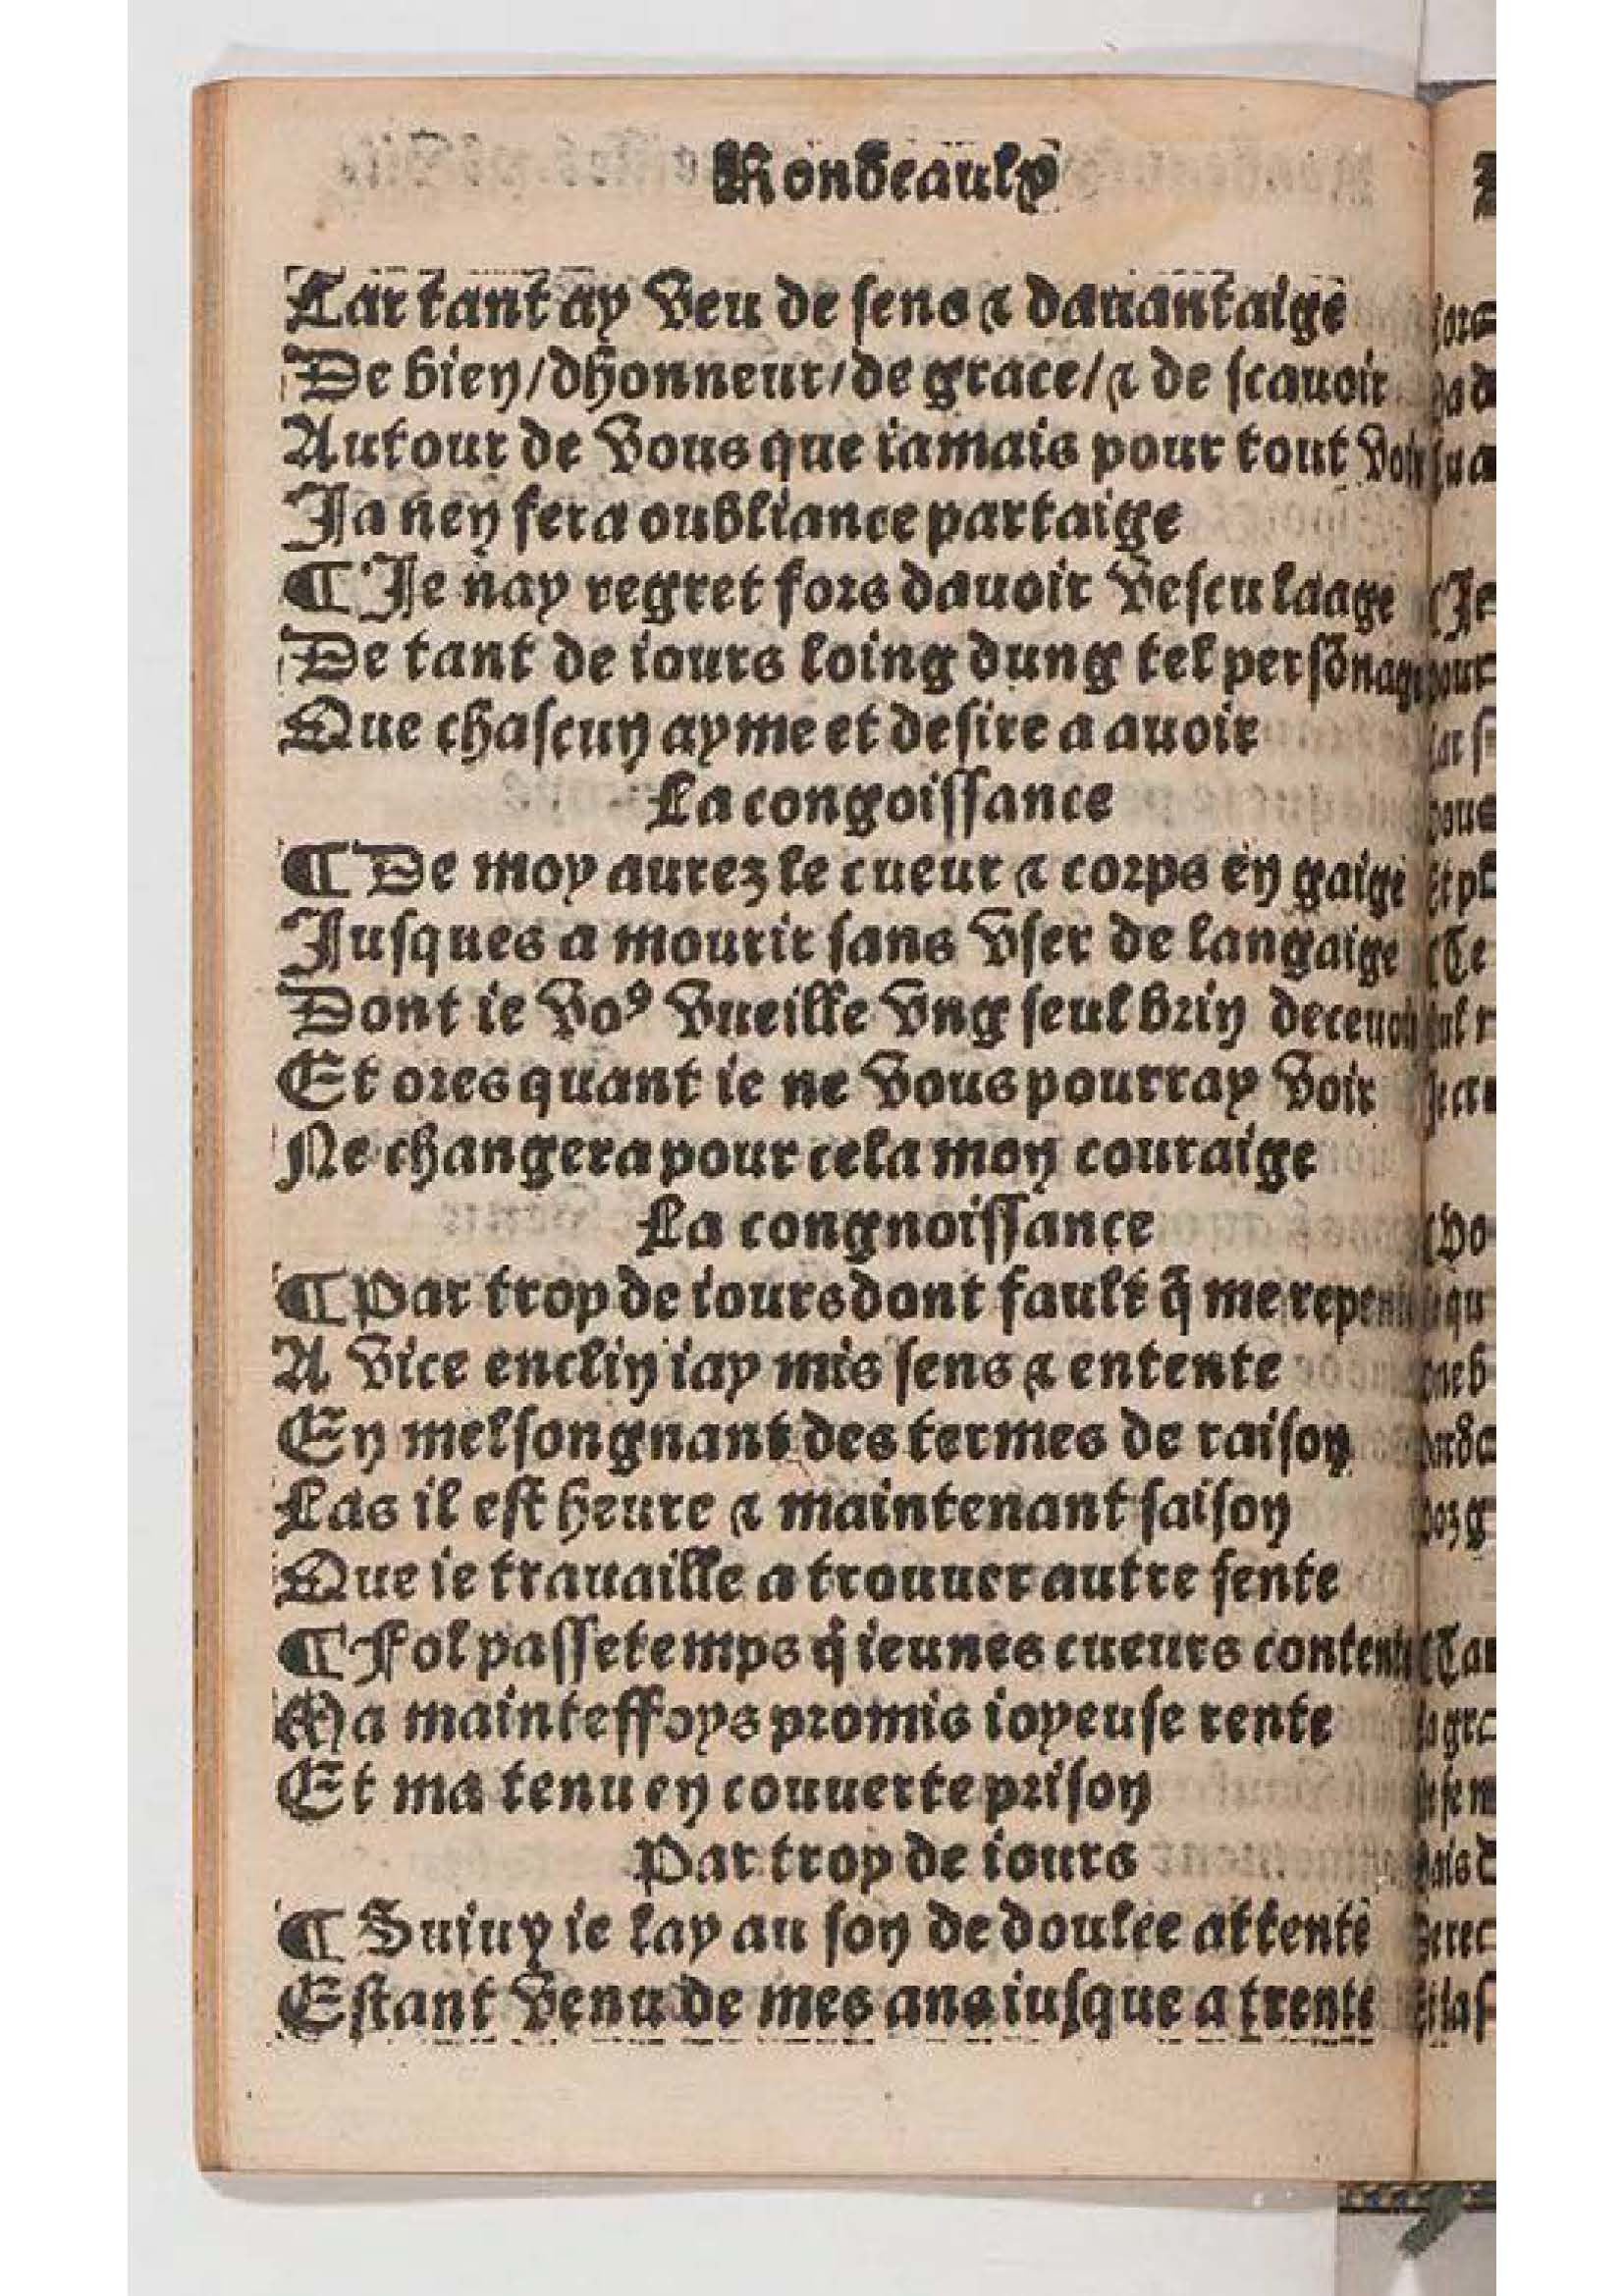 Rondeaulx
Car tant ay veu de sens & dauantaige
De bien/dhonneur/de grace/& de scauoir
Autour de vous que iamais pour tout voir
Ja nen fera oubliance partaige
¶ Je nay regret fors dauoir vescu laage
De tant de iours loing dung tel persõnage
Que chascun ayme et desire a auoir
La congoissance
¶ De moy aurez le cueur & corps en gaige
Jusques a mourir sans vser de langaige
Dont ie voꝰ vueille vng seul brin deceuoir
Et ores quant ie ne vous pourray voir
Ne changera pour cela mon couraige
La congnoissance
¶ Par trop de iours dont fault q̃ me repente
A vice enclin iay mis sens & entente
En meslongnant des termes de raison
Las il est heure & maintenant saison
Que ie trauaille a trouuer autre sente
¶ Fol passetemps q̃ ieunes cueurs contente
Ma mainteffoys promis ioyeuse rente
Et ma tenu en couuerte prison
Par trop de iours
¶ Suiuy ie lay au son de doulce attente
Estant venu de mes ans iusque a trente